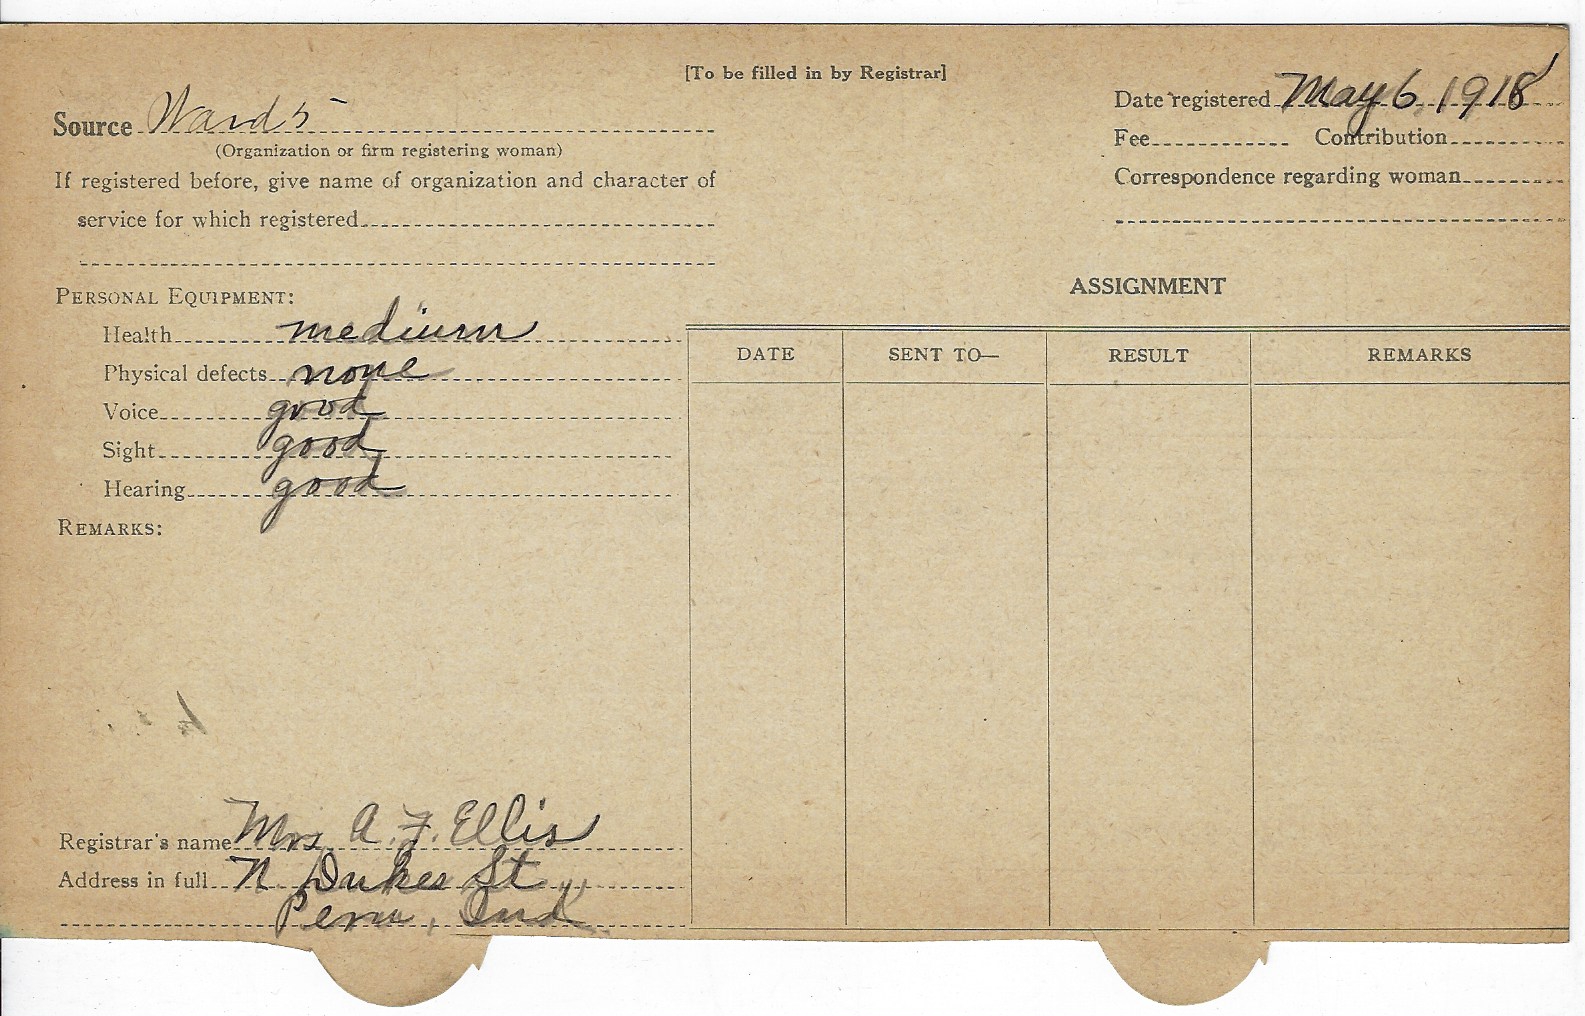 [To be filled in by Registrar]
Source Ward 5
(Organization or firm registering woman)
If registered before, give name of organization and character of
service for which registered
Date registered May 6, 1918
Fee Contribution
Correspondence regarding woman
PERSONAL EQUIPMENT:
Health medium
Physical defects none
Voice good
Sight good
Hearing good
REMARKS:
ASSIGNMENT
DATE SENT TO— RESULT REMARKS
Registrar's name Mrs A. F. Ellis
Address in full N Dukes St
Peru, Ind.